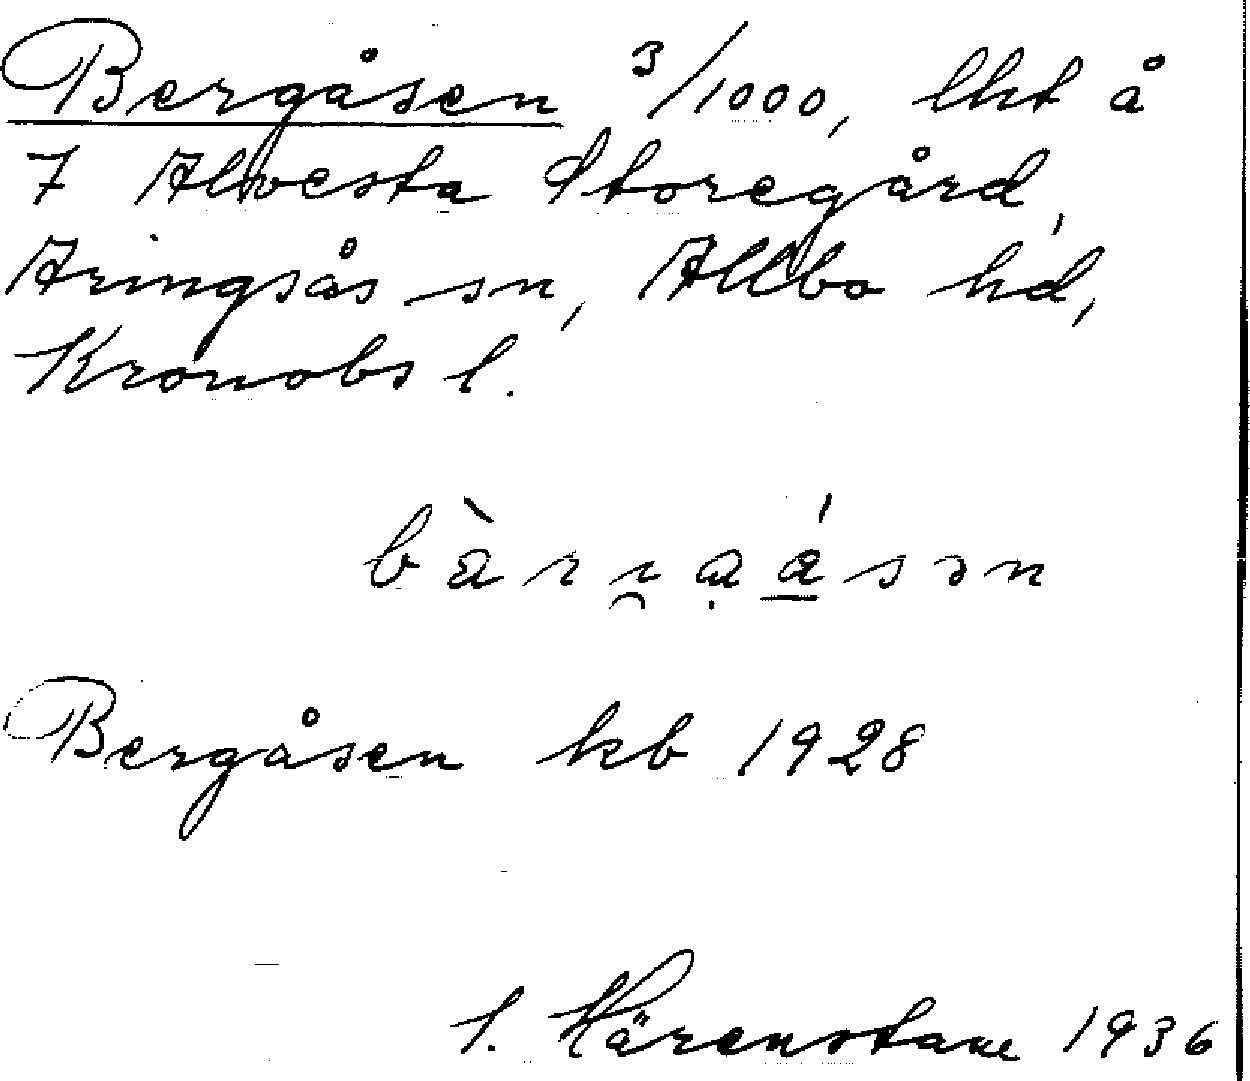 Bergåsen 3/1000, lht å
7 Alvesta Storegård,
Aringsås sn, Allbo hd,
Kronobs l.
Bergåsen kb 1928
S. Härenstam 1936